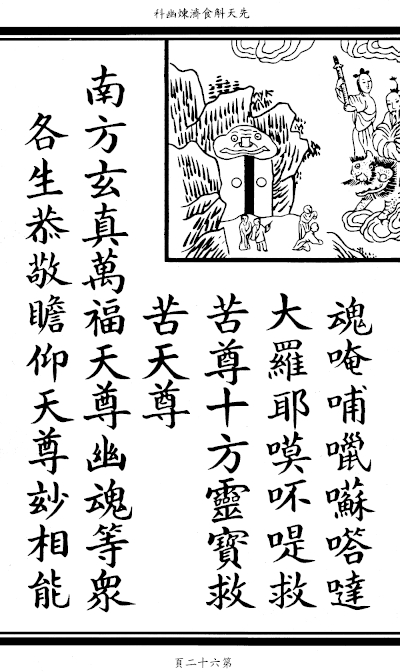 先天斛食濟煉幽科
魂唵哺囌嗒噠
大羅耶嗼吥救
苦尊十方靈寶救
苦天尊
南方玄真萬福天尊幽魂等眾
各生恭敬瞻仰天尊妙相能
第六十二頁